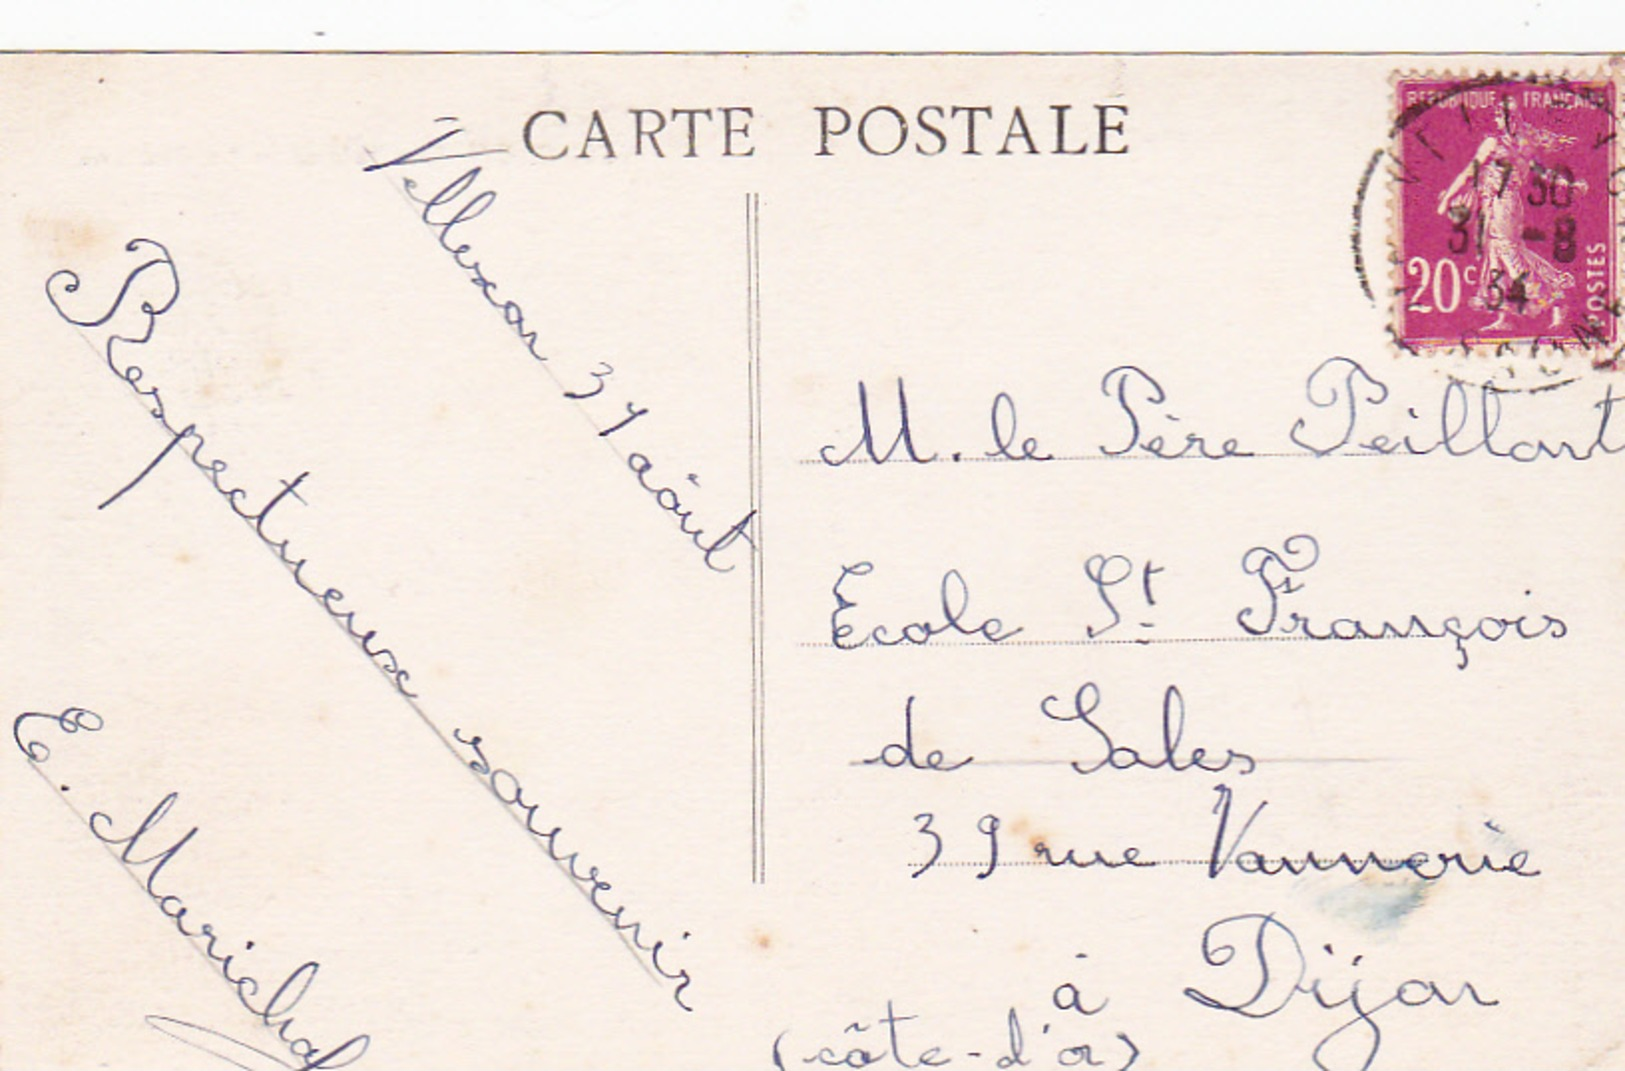 CARTE POSTALE
REPUBLIQUE FRANÇAISE
17 30
31 - 8
34
20c
POSTES
Villexon 31 août
Respectueux souvenir
E. Marichal
M. le Père Peillant
Ecole St François
de Sales
39 rue Vannerie
à Dijon
(côte-d'or)